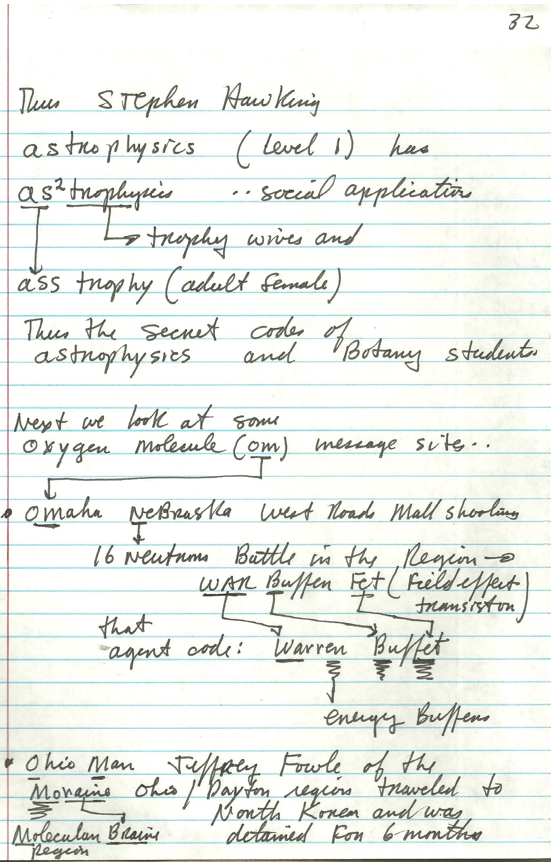 32
Thus Stephen Hawking
astrophysics (Level 1) has
as² trophysics .. social application
trophy wives and
ass trophy (adult female)
Thus the secret codes of
astrophysics and Botany students
Next we look at some
Oxygen molecule (om) message sites..
• Omaha NeBraska West Roads Mall shooting
16 Neutrons Battle in the Region →
WAR Buffer Fet (Field effect
transistor)
that
agent code: Warren Buffet
energy Buffers
• Ohio Man Jeffrey Fowle of the
Moraine Ohio / Dayton region traveled to
North Korea and was
Molecular Braine detained For 6 months
Region